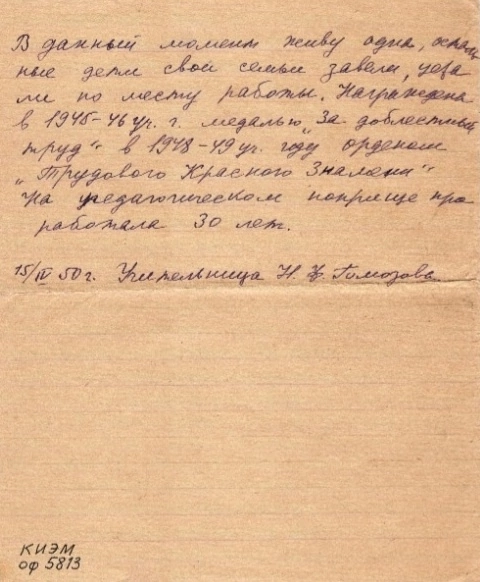 В данный момент живу одна, осталь
ные дети свои семьи завели, уеха
ли по месту работы. Награждена
в 1945-46 уч. г. медалью „За доблестный
труд“ в 1948-49 уч. году орденом
„Трудового Красного Знамени“
На педагогическом поприще про
работала 30 лет.
15/IV 50 г. Учительница Н. Гомозова
КИЭМ
оф 5813